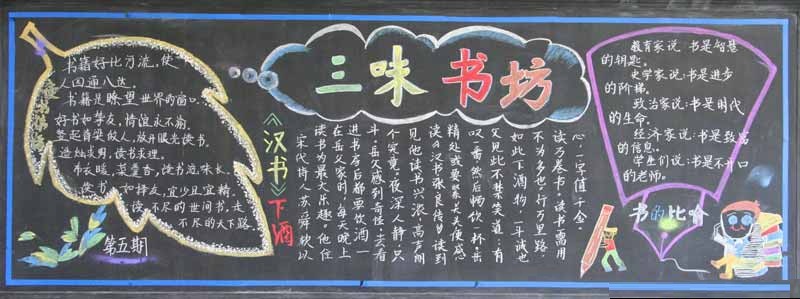 三味书坊
书籍好比河流,使
人四通八达。
书籍是瞭望世界的窗口。
好书如挚友,情谊永不渝。
竖起脊梁做人,放开眼光读书。
读书,如择友,宜少且宜精。
读不尽的世间书,走
不尽的天下路。
第五期
《汉书》下酒
宋代诗人苏舜钦以
读书为最大乐趣。他住
在岳父家时,每天晚上
进书房后都要饮酒一
斗。岳父感到奇怪,去看
个究竟。夜深人静,只
见他读书兴浓,高声朗
读《汉书·张良传》读到
精处或要紧关头便感
叹一番,然后畅饮一杯。岳
父见此不禁笑道:有
如此下酒物,一斗诚也
不为多也。行万里路,
读万卷书。读书需用
心,一字值千金。
教育家说:书是智慧
的钥匙。
史学家说:书是进步
的阶梯。
政治家说:书是时代
的生命。
经济家说:书是致富
的信息。
学生们说:书是不开口
的老师。
书的比喻